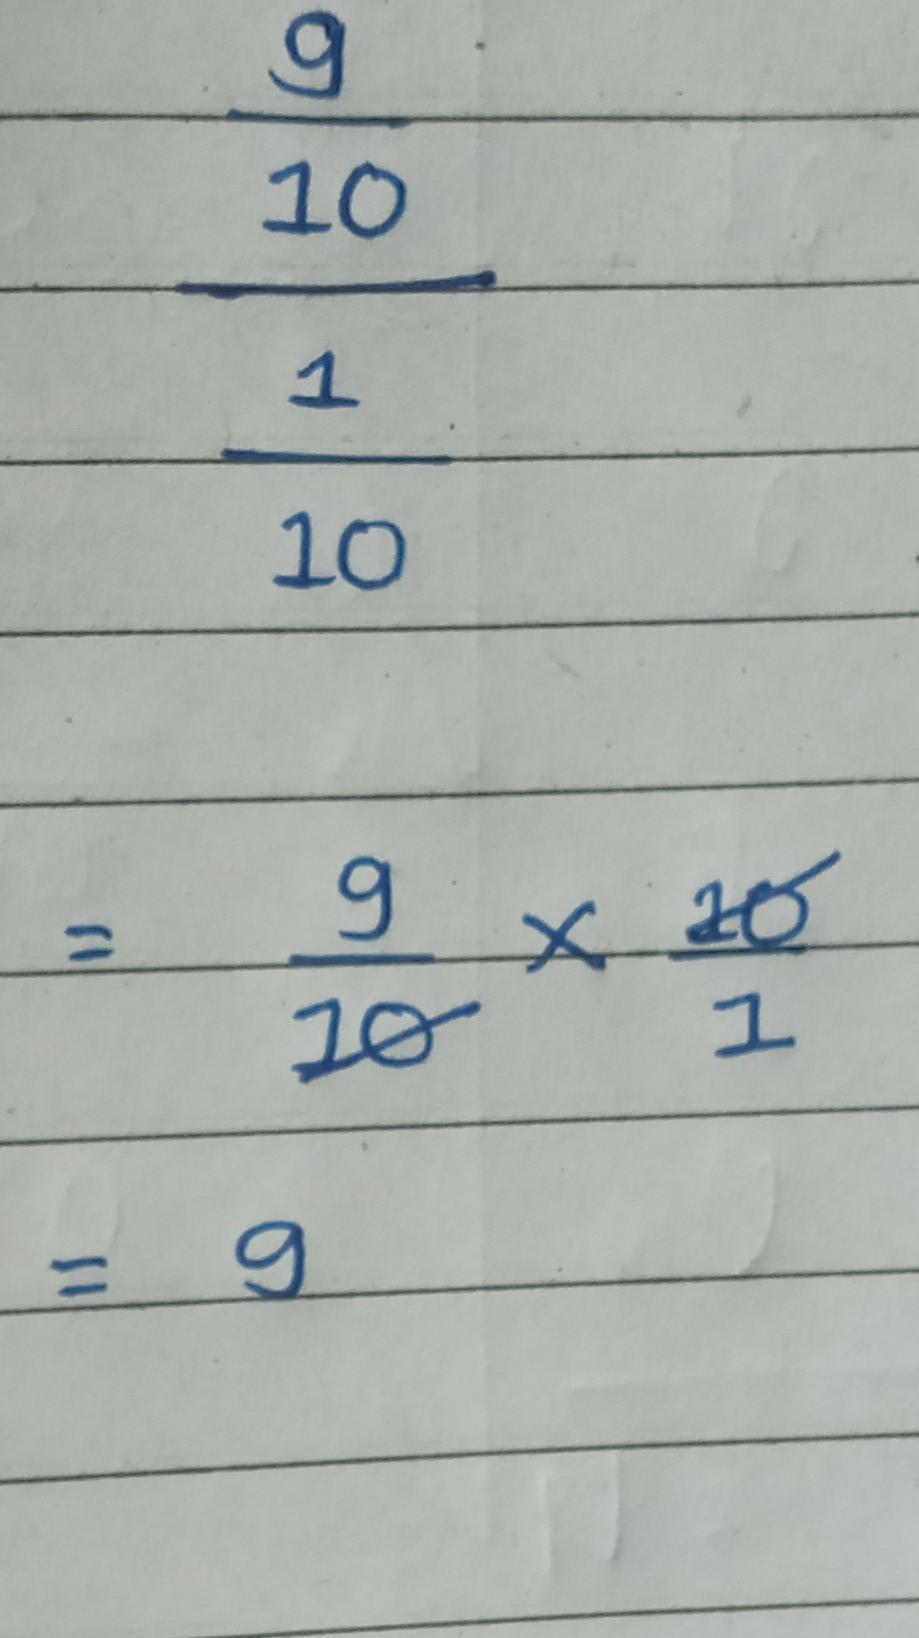 9
10
1
10
= 9/10 × 10/1
= 9